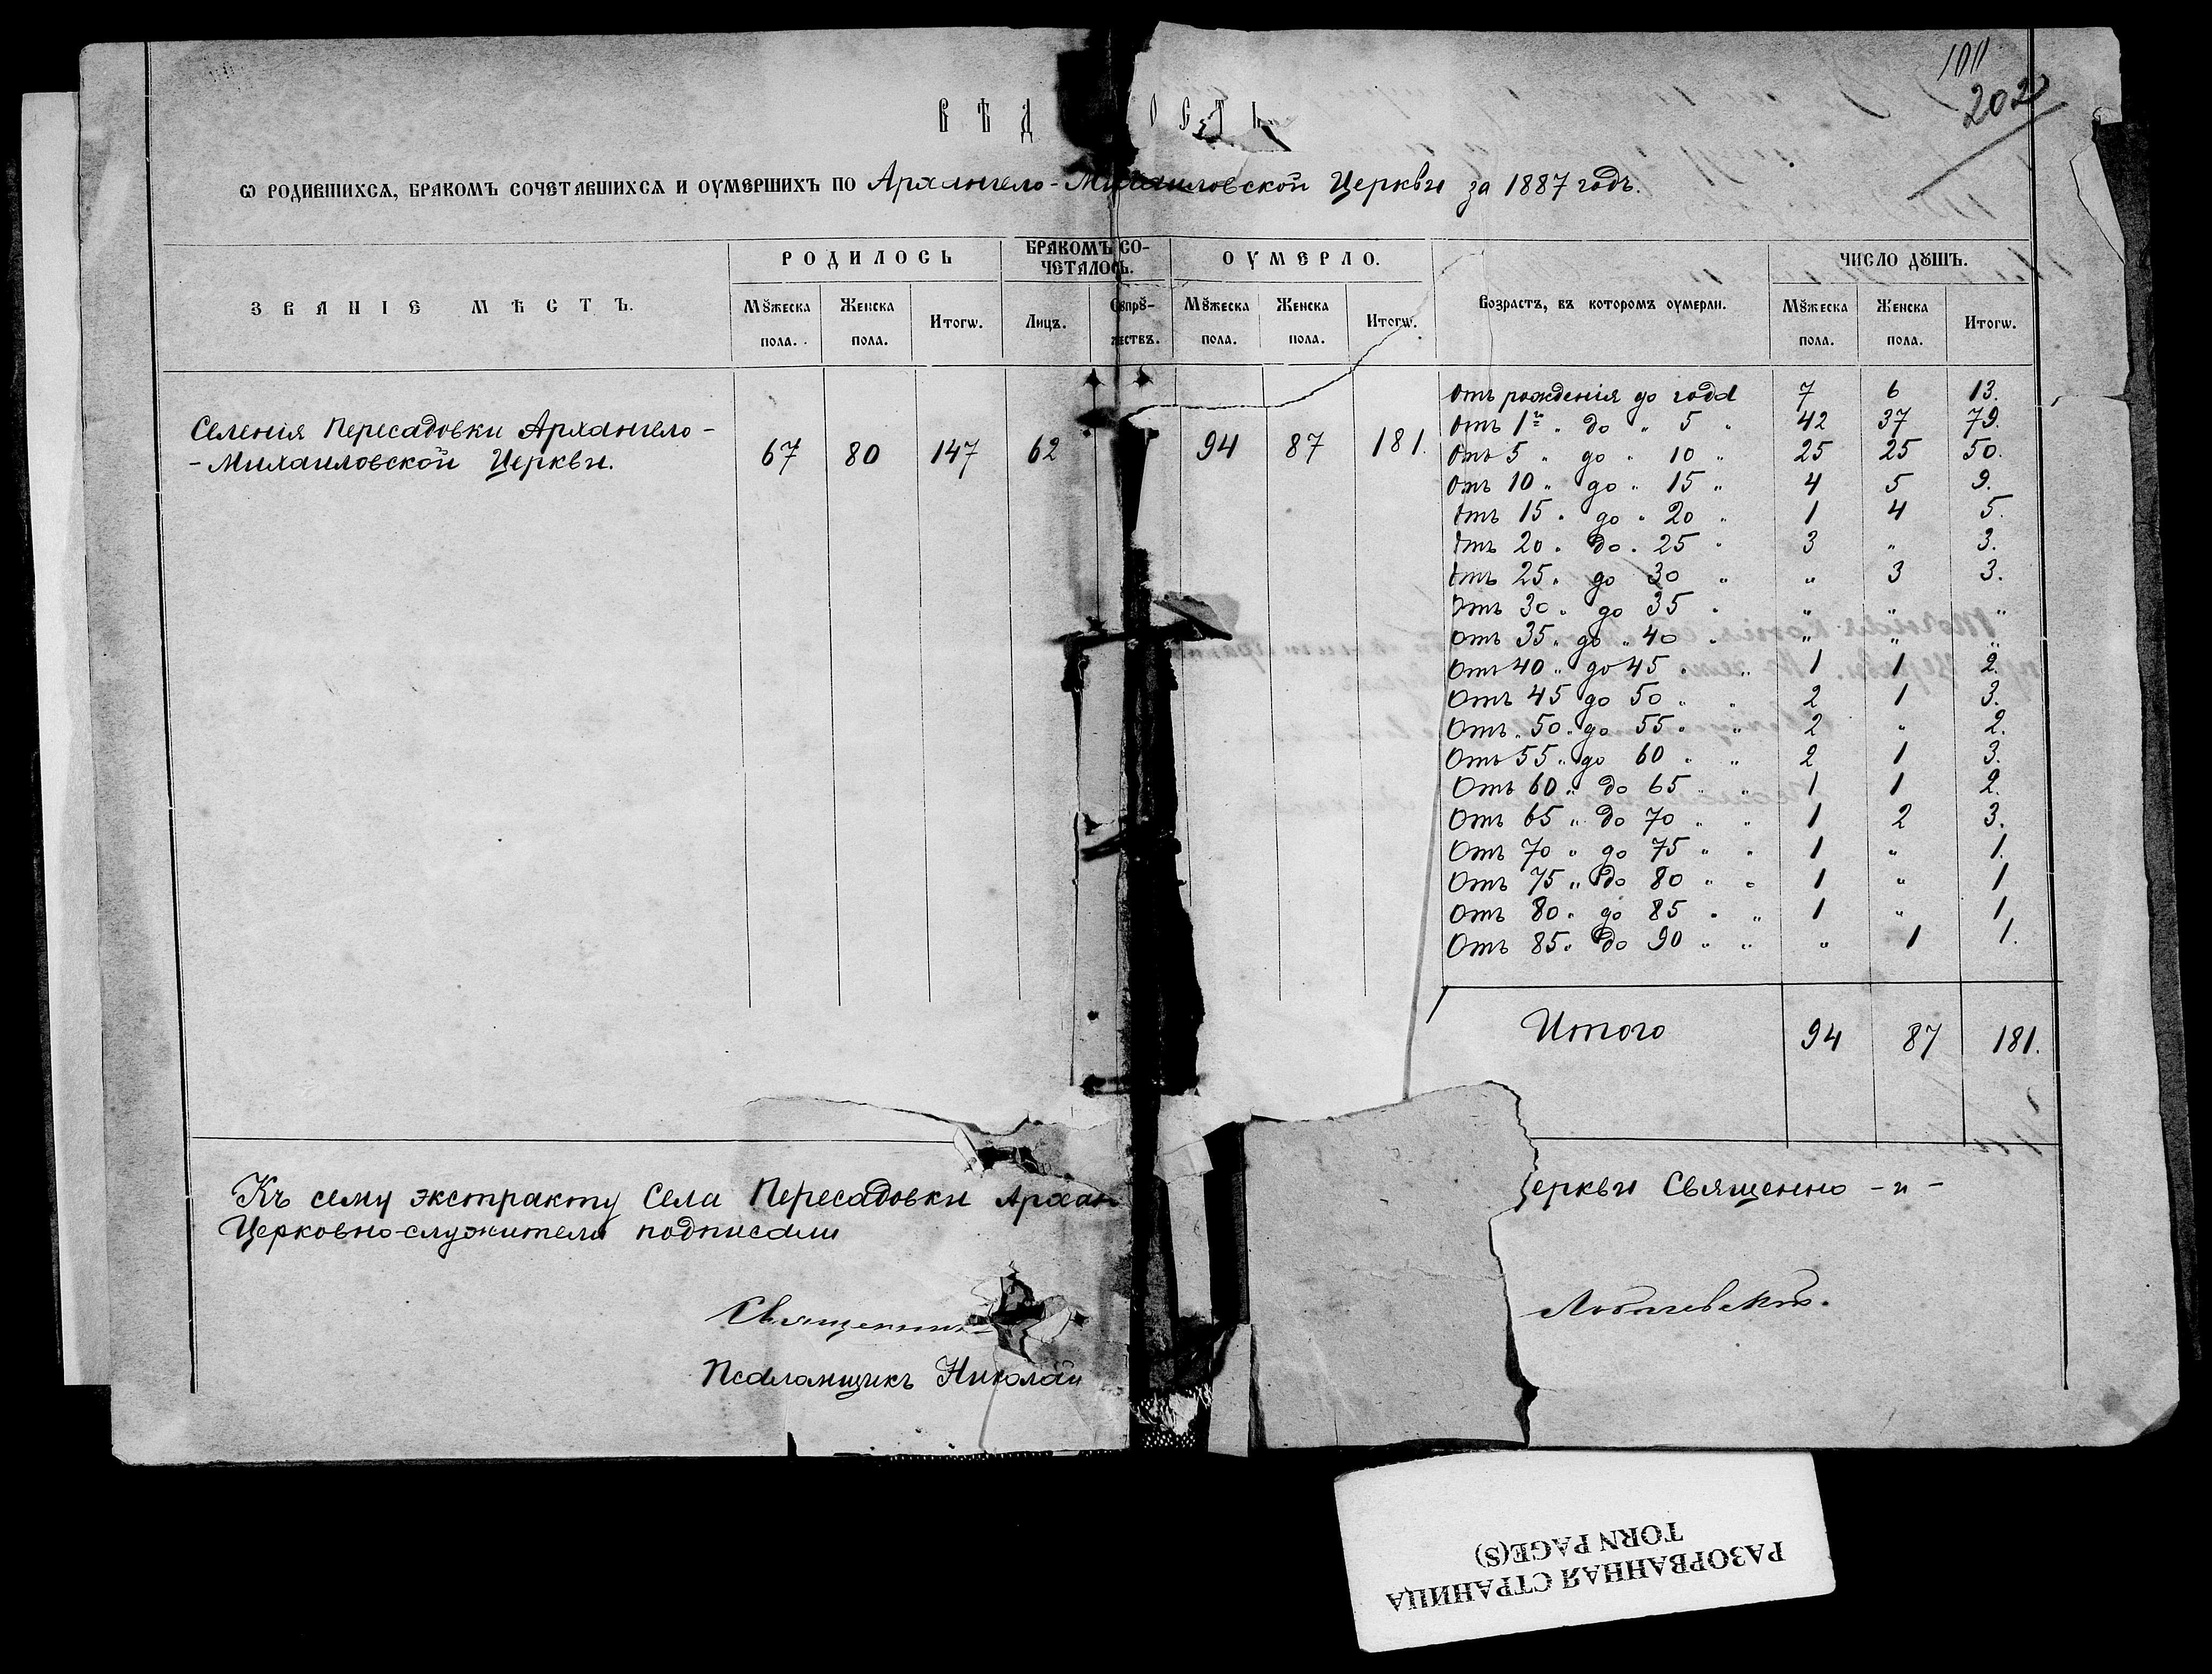 100
202
ВѢД ОСТЬ
Ѡ РОДИВШИХСѦ, БРАКОМЪ СОЧЕТАВШИХСѦ И ОУМЕРШИХЪ ПО Архангело-Михаиловской Церкви за 1887 годъ.
ЗВАНІЕ МѢСТЪ.
РОДИЛОСЬ
БРАКОМЪ СО-
ЧЕТАЛОСЬ.
ОУМЕРЛО.
Возрастъ, въ которомъ оумерли.
ЧИСЛО ДꙊШЪ.
Мꙋжеска пола. Женска пола. Итогѡ. Лицъ. Сꙋпрꙋ-жествъ. Мꙋжеска пола. Женска пола. Итогѡ. Мꙋжеска пола. Женска пола. Итогѡ.
Селенія Пересадовки Архангело-
-Михаиловской Церкви. 67 80 147 62 94 87 181.
Отъ рожденія до года 7 6 13.
Отъ 1го „ до „ 5 „ 42 37 79.
Отъ 5 „ до „ 10 „ 25 25 50.
Отъ 10 „ до „ 15 „ 4 5 9.
Отъ 15 „ до „ 20 „ 1 4 5.
Отъ 20 „ до „ 25 „ 3 „ 3.
Отъ 25 „ до 30 „ „ 3 3.
Отъ 30 „ до 35 „ „ „ „
Отъ 35 „ до „ 40 „ „ „ „
Отъ 40 „ до 45 „ „ 1 1 2.
Отъ 45 до 50 „ „ 2 1 3.
Отъ „ 50 „ до 55 „ „ 2 „ 2.
Отъ 55 „ до 60 „ „ 2 1 3.
Отъ 60 „ до 65 „ „ 1 1 2.
Отъ 65 „ до 70 „ „ 1 2 3.
Отъ 70 „ до 75 „ „ 1 „ 1.
Отъ 75 „ до 80 „ „ 1 „ 1
Отъ 80 „ до 85 „ „ 1 „ 1.
Отъ 85 „ до 90 „ „ „ 1 1.
Итого 94 87 181.
Къ сему экстракту Села Пересадовки Архан еркви Священно -и-
Церковно-служители подписали
Священник
Псаломщикъ Николай
РАЗОРВАННАЯ СТРАНИЦА
TORN PAGE(S)